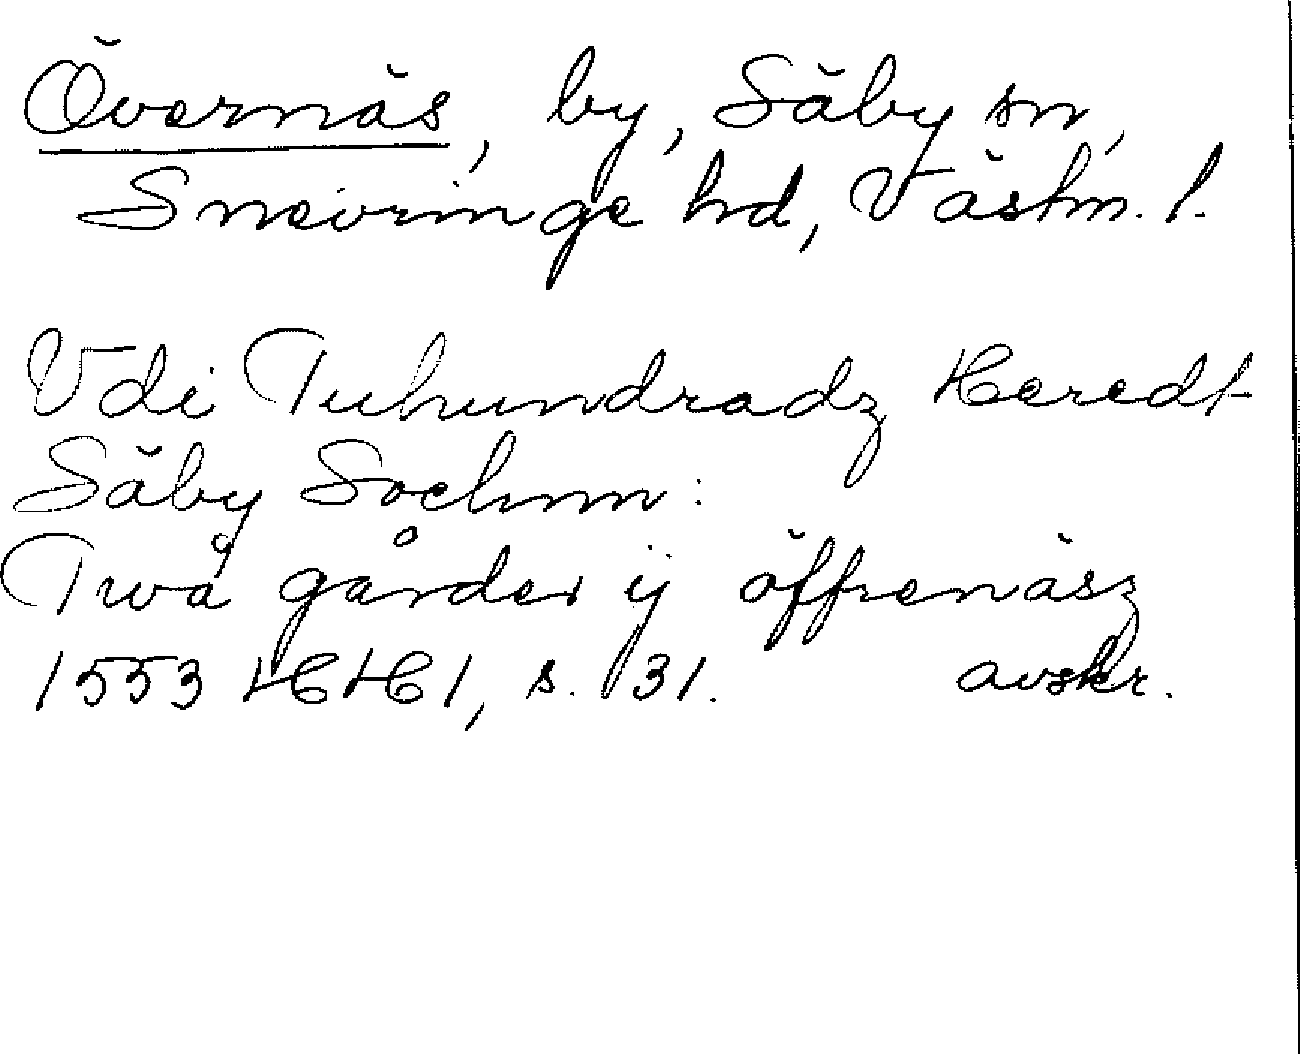 Övernäs, by, Säby sn,
Snevringe hd, Västm. l.
Vdi Tuhundradz Heredt
Säby Sochnn:
Twå gårder ij öffrenäsz
1553 HH 1, s. 31. avskr.